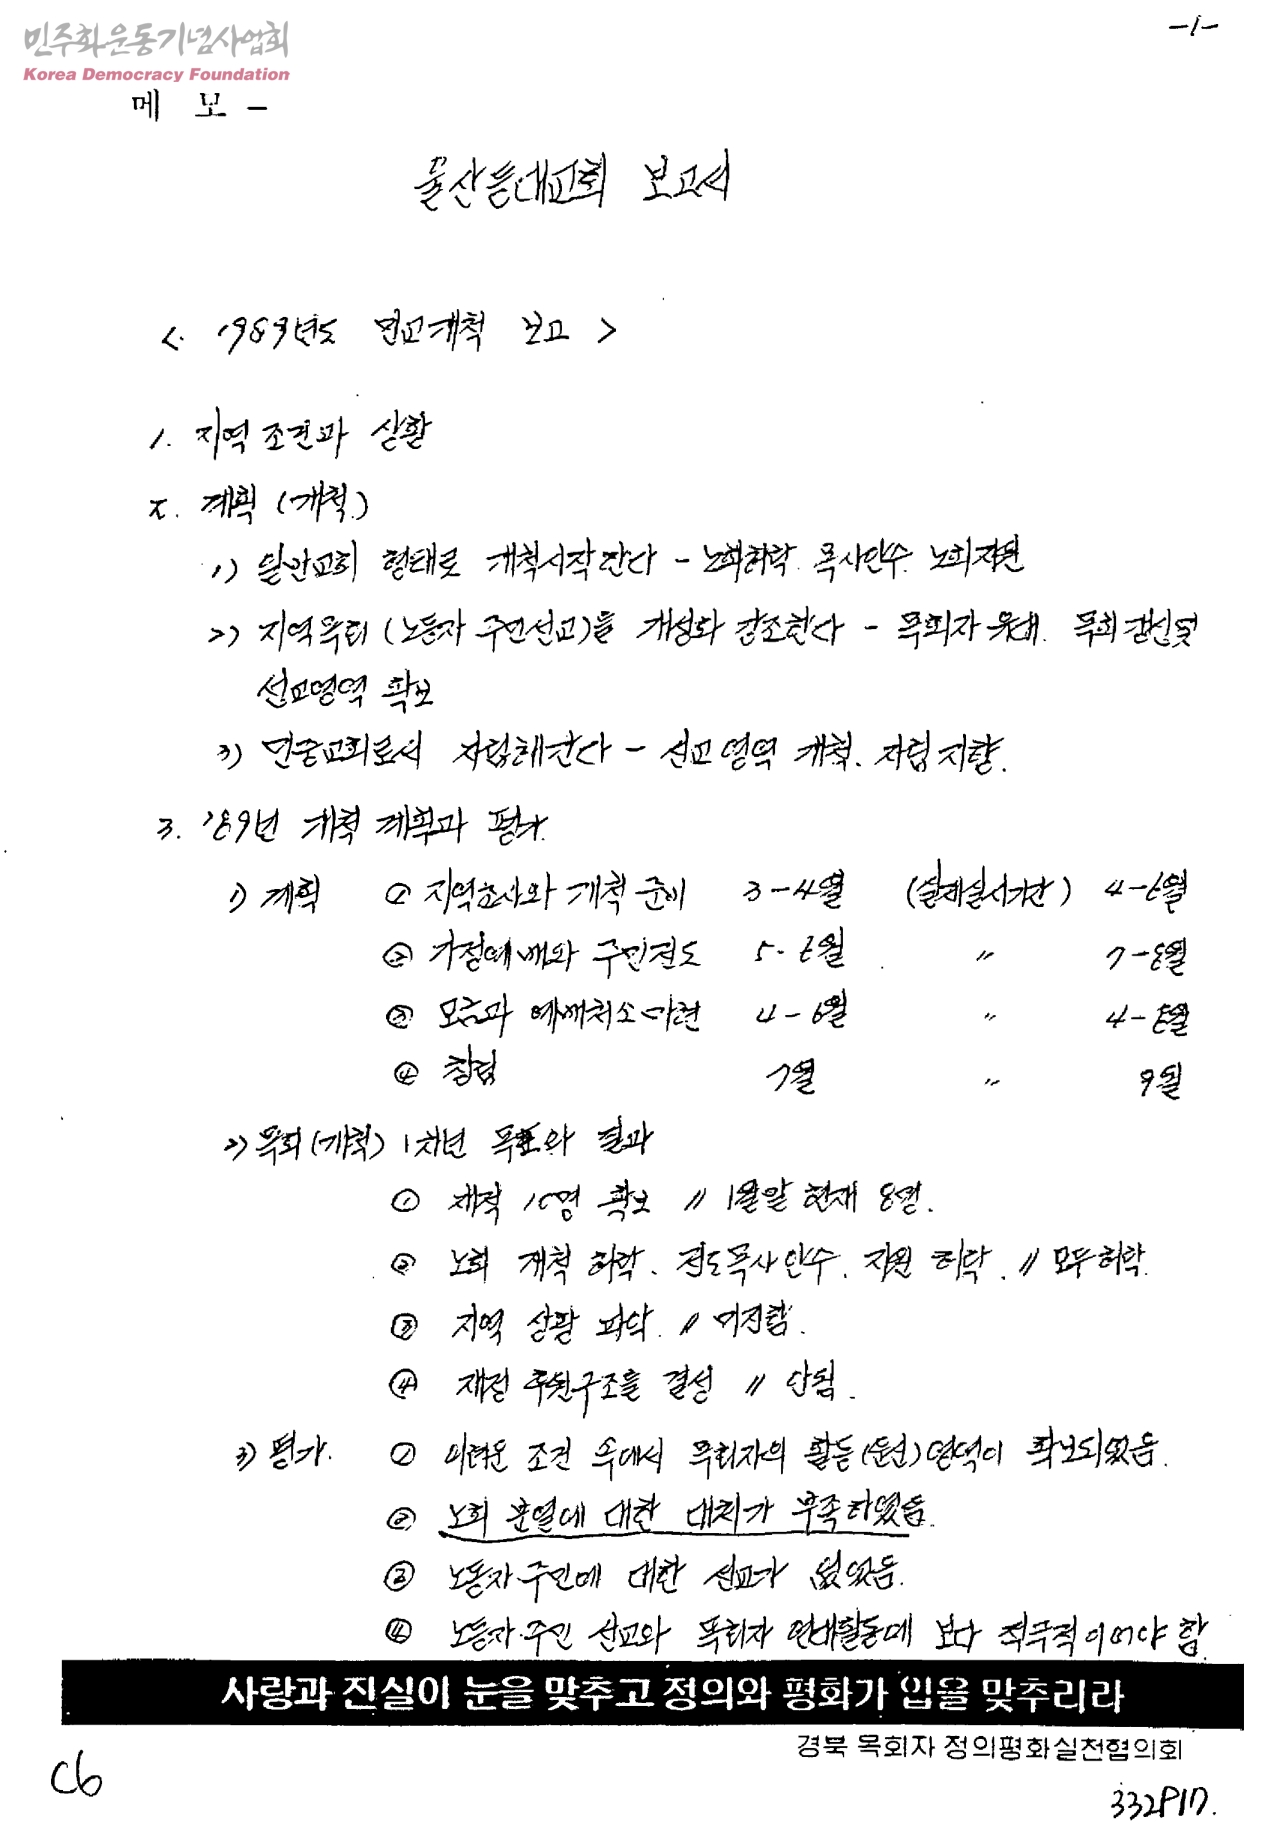 -1-
민주화운동기념사업회
Korea Democracy Foundation
메 모 -
울산등대교회 보고서
< 1989년도 민교개척 보고 >
1. 지역 조건과 상황
2. 계획 (개척)
1) 일반교회 형태로 개척시작한다 - 노회허락. 목사안수. 노회지원
2) 지역목회 (노동자 주민선교)를 개성화 강조한다 - 목회자 유대. 목회갱신및
선교영역 확보
3) 민중교회로서 자립해간다 - 선교영역 개척. 자립지향.
3. '89년 개척 계획과 평가.
1) 계획 ① 지역조사와 개척 준비 3-4월 (실제실시기간) 4-6월
② 가정예배와 주민전도 5-6월 〃 7-8월
③ 모금과 예배처소 마련 4-6월 〃 4-8월
④ 창립 7월 〃 9월
2) 목회(개척) 1차년 목표와 결과
① 재적 10명 확보 // 1월말 현재 8명.
② 노회 개척 허락. 전도목사 안수. 지원 허락. // 모두허락.
③ 지역 상황 파악. // 미진함.
④ 재정 후원구조를 결성 // 안됨.
3) 평가. ① 어려운 조건 속에서 목회자의 활동(운신)영역이 확보되었음.
② 노회 분열에 대한 대처가 부족하였음.
③ 노동자·주민에 대한 선교가 없었음.
④ 노동자·주민 선교와 목회자 연대활동에 보다 적극적이어야 함.
사랑과 진실이 눈을 맞추고 정의와 평화가 입을 맞추리라
경북 목회자 정의평화실천협의회
C6
332P17.